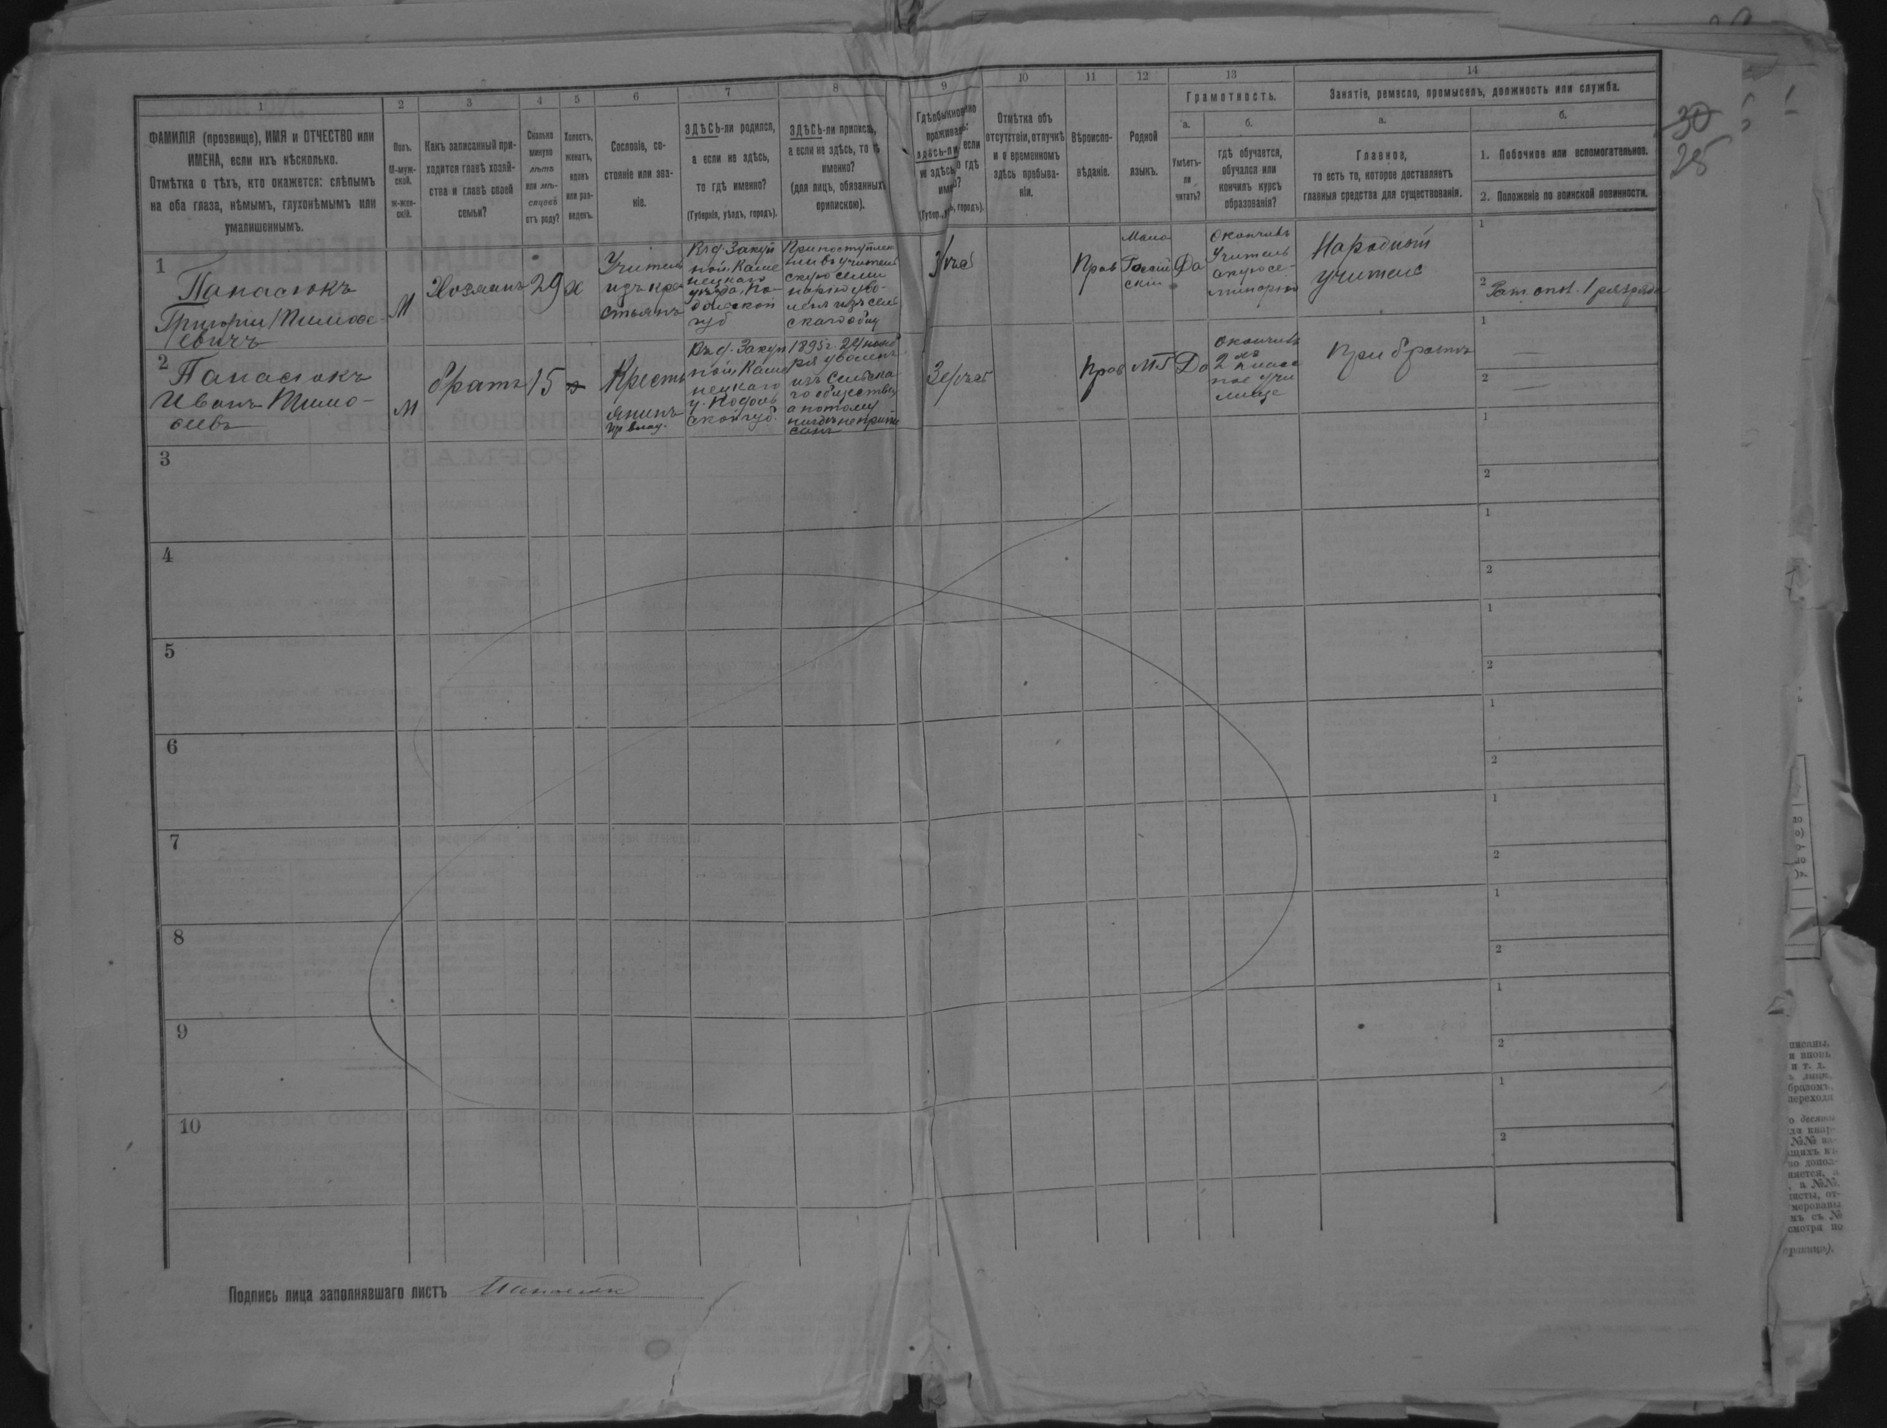 1
2
3
4
5
6
7
8
9
10
11
12
13
14
ФАМИЛІЯ (прозвище), ИМЯ и ОТЧЕСТВО или
ИМЕНА, если ихъ нѣсколько.
Отмѣтка о тѣхъ, кто окажется: слѣпымъ
на оба глаза, нѣмымъ, глухонѣмымъ или
умалишеннымъ.
Полъ.
М-муж-
ской.
ж-жен-
скій.
Какъ записанный при-
ходится главѣ хозяй-
ства и главѣ своей
семьи?
Сколько
минуло
лѣтъ
или мѣ-
сяцевъ
отъ роду?
Холостъ,
женатъ,
вдовъ
или раз-
веденъ.
Сословіе, со-
стояніе или зва-
ніе.
ЗДѢСЬ-ли родился,
а если не здѣсь,
то гдѣ именно?
(Губернія, уѣздъ, городъ).
ЗДѢСЬ-ли приписанъ,
а если не здѣсь, то гдѣ
именно?
(для лицъ, обязанныхъ
припискою).
Гдѣ обыкновенно
проживаетъ:
здѣсь-ли, если
не здѣсь, то гдѣ
именно?
Отмѣтка объ
отсутствіи, отлучкѣ
и о временномъ
здѣсь пребыва-
ніи.
Вѣроиспо-
вѣданіе.
Родной
языкъ.
Грамотность.
а.
Умѣетъ-
ли
читать?
б.
гдѣ обучается,
обучался или
кончилъ курсъ
образованія?
Занятія, ремесло, промыселъ, должность или служба.
а.
Главное,
то есть то, которое доставляетъ
главныя средства для существованія.
б.
1. Побочное или вспомогательное.
2. Положеніе по воинской повинности.
30
25
1
Панасюкъ
Григорій Тимофе-
евичъ
М
Хозяинъ
29
х
Учитель
изъ кре-
стьянъ
Въ д. Закуп
ной Каме
нецкаго
уѣзда По-
дольской
губ
При поступле
ніи въ учитель
скую семи
нарію уво-
ленъ изъ сель
скаго общ
Здѣсь
Прав
Мало
Россій
скій
Да
Окончилъ
Учитель
скую се-
минарію
Народный
учитель
1
2
Рат. опол. 1 разряда
2
Панасюкъ
Иванъ Тимо-
ѳеевъ
М
братъ
15
х
Кресть
янинъ
Въ д. Закуп
ной Каме
нецкаго
у. Подоль
ской губ.
1895 г. 24 нояб
ря уволенъ
изъ Сельска
го общества
а потому
нигдѣ не припи
санъ
Здѣсь
Прав
МР
Да
Окончилъ
2 хъ
класс
ное учи
лище
При братѣ
1
2
3
1
2
4
1
2
5
1
2
6
1
2
7
1
2
8
1
2
9
1
2
10
1
2
Подпись лица заполнявшаго листъ Панасюкъ